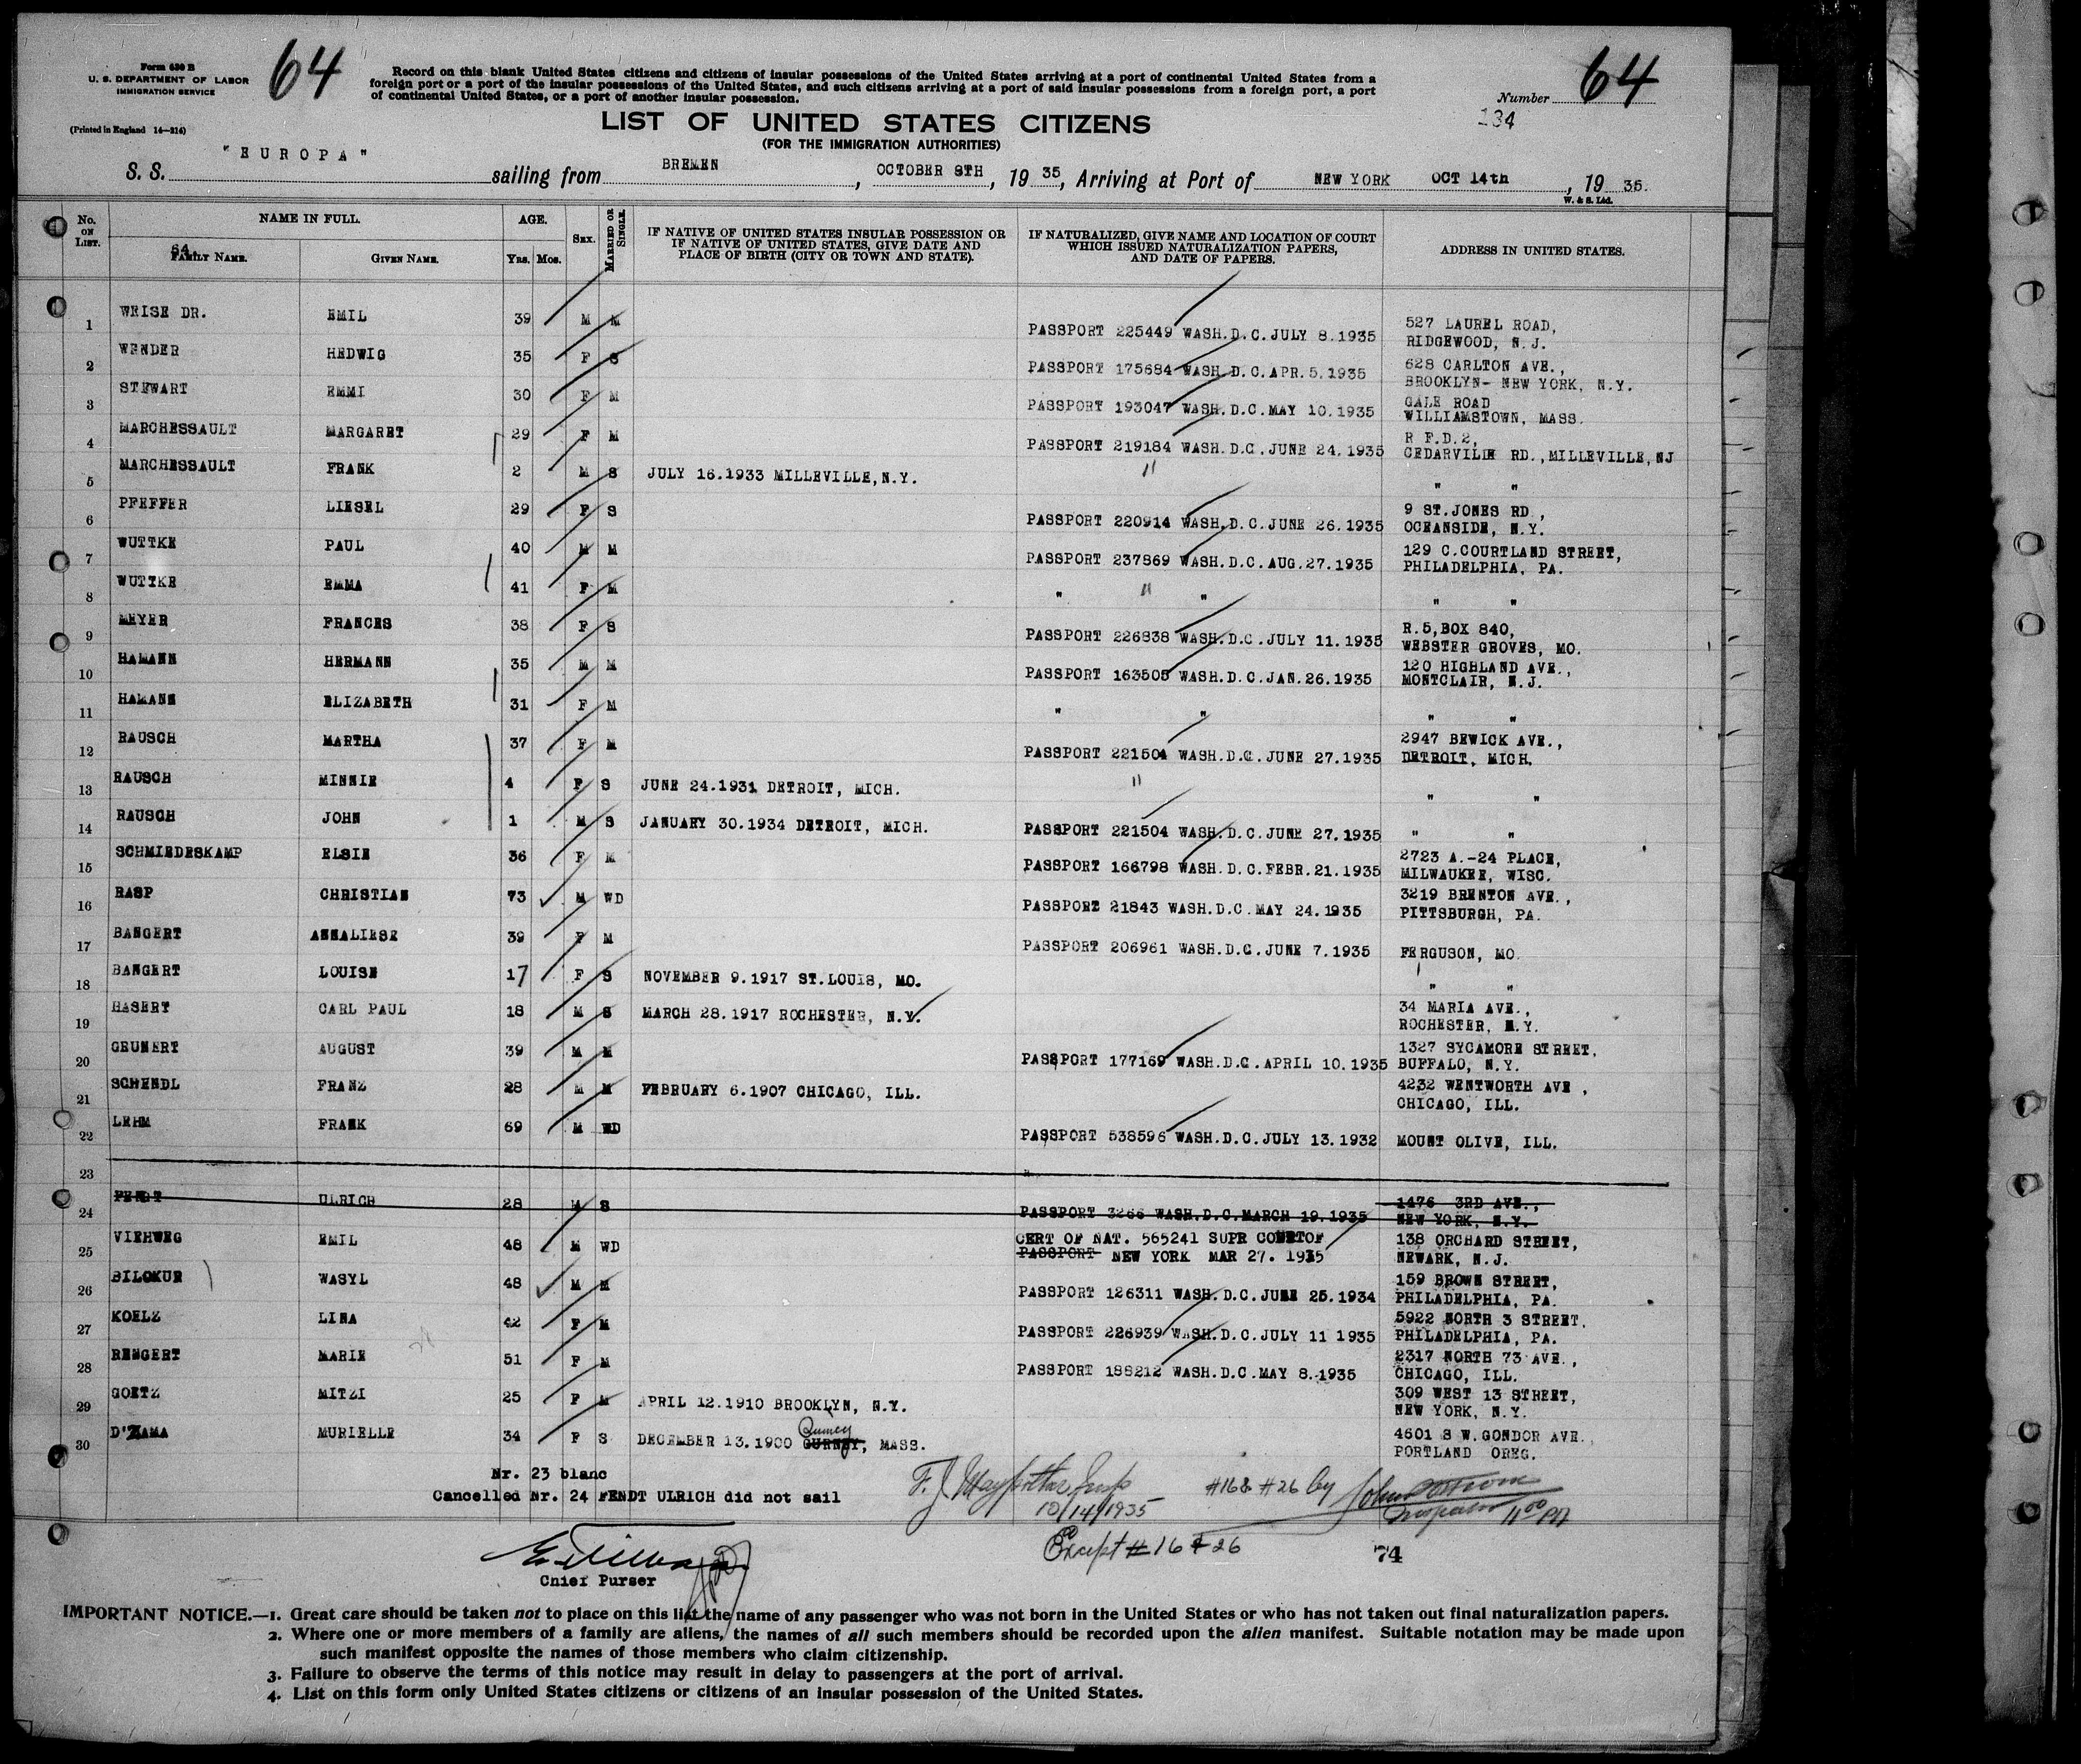 Form 630 B
U. S. DEPARTMENT OF LABOR
IMMIGRATION SERVICE
(Printed in England 14—214)
64
Record on this blank United States citizens and citizens of insular possessions of the United States arriving at a port of continental United States from a
foreign port or a port of the insular possessions of the United States, and such citizens arriving at a port of said insular possessions from a foreign port, a port
of continental United States, or a port of another insular possession.
Number 64
134
LIST OF UNITED STATES CITIZENS
(FOR THE IMMIGRATION AUTHORITIES)
S. S. "EUROPA" sailing from BREMEN, OCTOBER 8TH, 19 35, Arriving at Port of NEW YORK OCT 14th, 19 35.
W. & S. Ltd.
No. ON LIST. NAME IN FULL. AGE. SEX. MARRIED OR SINGLE. IF NATIVE OF UNITED STATES INSULAR POSSESSION OR IF NATIVE OF UNITED STATES, GIVE DATE AND PLACE OF BIRTH (CITY OR TOWN AND STATE). IF NATURALIZED, GIVE NAME AND LOCATION OF COURT WHICH ISSUED NATURALIZATION PAPERS, AND DATE OF PAPERS. ADDRESS IN UNITED STATES.
64
FAMILY NAME. GIVEN NAME. Yrs. Mos.
1 WEISE DR. EMIL 39 M M PASSPORT 225449 WASH.D.C.JULY 8.1935 527 LAUREL ROAD,
RIDGEWOOD, N.J.
2 WENDER HEDWIG 35 F S PASSPORT 175684 WASH.D.C.APR.5.1935 628 CARLTON AVE.,
BROOKLYN- NEW YORK, N.Y.
3 STEWART EMMI 30 F M PASSPORT 193047 WASH.D.C.MAY 10.1935 GALE ROAD
WILLIAMSTOWN, MASS.
4 MARCHESSAULT MARGARET 29 F M PASSPORT 219184 WASH.D.C.JUNE 24.1935 R F.D.2,
CEDARVILLE RD.,MILLEVILLE,NJ
5 MARCHESSAULT FRANK 2 M S JULY 16.1933 MILLEVILLE,N.Y. " " "
6 PFEFFER LIESEL 29 F S PASSPORT 220914 WASH.D.C.JUNE 26.1935 9 ST.JONES RD.,
OCEANSIDE, N.Y.
7 WUTTKE PAUL 40 M M PASSPORT 237869 WASH.D.C.AUG.27.1935 129 C.COURTLAND STREET,
PHILADELPHIA, PA.
8 WUTTKE EMMA 41 F M " " " " "
9 MEYER FRANCES 38 F S PASSPORT 226838 WASH.D.C.JULY 11.1935 R.5,BOX 840,
WEBSTER GROVES, MO.
10 HAMANN HERMANN 35 M M PASSPORT 163505 WASH.D.C.JAN.26.1935 120 HIGHLAND AVE.,
MONTCLAIR, N.J.
11 HAMANN ELIZABETH 31 F M " " " "
12 RAUSCH MARTHA 37 F M PASSPORT 221504 WASH.D.C.JUNE 27.1935 2947 BEWICK AVE.,
DETROIT, MICH.
13 RAUSCH MINNIE 4 F S JUNE 24.1931 DETROIT, MICH. " " "
14 RAUSCH JOHN 1 M S JANUARY 30.1934 DETROIT, MICH. PASSPORT 221504 WASH.D.C.JUNE 27.1935 " "
15 SCHMIEDESKAMP ELSIE 36 F M PASSPORT 166798 WASH.D.C.FEBR.21.1935 2723 A.-24 PLACE,
MILWAUKEE, WISC.
16 RASP CHRISTIAN 73 M WD PASSPORT 21843 WASH.D.C.MAY 24.1935 3219 BRENTON AVE.,
PITTSBURGH, PA.
17 BANGERT ANNALIESE 39 F M PASSPORT 206961 WASH.D.C.JUNE 7.1935 FERGUSON, MO.
18 BANGERT LOUISE 17 F S NOVEMBER 9.1917 ST.LOUIS, MO. " "
19 HASERT CARL PAUL 18 M S MARCH 28.1917 ROCHESTER, N.Y. 34 MARIA AVE.,
ROCHESTER, N.Y.
20 GRUNERT AUGUST 39 M M PASSPORT 177169 WASH.D.C.APRIL 10.1935 1327 SYCAMORE STREET,
BUFFALO, N.Y.
21 SCHENDL FRANZ 28 M M FEBRUARY 6.1907 CHICAGO, ILL. 4232 WENTWORTH AVE ,
CHICAGO, ILL.
22 LEHM FRANK 69 M WD PASSPORT 538596 WASH.D.C.JULY 13.1932 MOUNT OLIVE, ILL.
23
24 FENDT ULRICH 28 M S PASSPORT 3266 WASH.D.C.MARCH 19.1935 1476 3RD AVE.,
NEW YORK, N.Y.
25 VIEHWEG EMIL 48 M WD CERT OF NAT. 565241 SUPR COURTOF 138 ORCHARD STREET,
PASSPORT NEW YORK MAR 27. 1935 NEWARK, N.J.
26 BILOKUR WASYL 48 M M PASSPORT 126311 WASH.D.C.JUNE 25.1934 159 BROWN STREET,
PHILADELPHIA, PA.
27 KOELZ LINA 42 F M PASSPORT 226939 WASH.D.C.JULY 11 1935 5922 NORTH 3 STREET,
PHILADELPHIA, PA.
28 RENGERT MARIE 51 F M PASSPORT 188212 WASH.D.C.MAY 8.1935 2317 NORTH 73 AVE.,
CHICAGO, ILL.
29 GOETZ MITZI 25 F M APRIL 12.1910 BROOKLYN, N.Y. 309 WEST 13 STREET,
NEW YORK, N.Y.
30 D'ZAMA MURIELLE 34 F S DECEMBER 13.1900 GURNEY, Quincy MASS. 4601 S W.GONDOR AVE.
PORTLAND OREG.
Nr. 23 blanc
Cancelled Nr. 24 FENDT ULRICH did not sail
10/14/1935
Except #16 & 26
#16 & #26 by John
Inspector 11:00 PM
74
Chief Purser
IMPORTANT NOTICE.—1. Great care should be taken not to place on this list the name of any passenger who was not born in the United States or who has not taken out final naturalization papers.
2. Where one or more members of a family are aliens, the names of all such members should be recorded upon the alien manifest. Suitable notation may be made upon
such manifest opposite the names of those members who claim citizenship.
3. Failure to observe the terms of this notice may result in delay to passengers at the port of arrival.
4. List on this form only United States citizens or citizens of an insular possession of the United States.